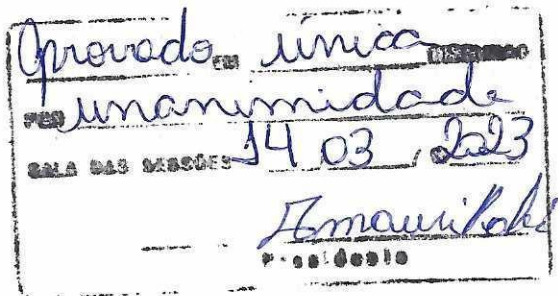 Aprovado EM única DISCUSSÃO
POR unanimidade
SALA DAS SESSÕES 14 03 / 2023
Presidente